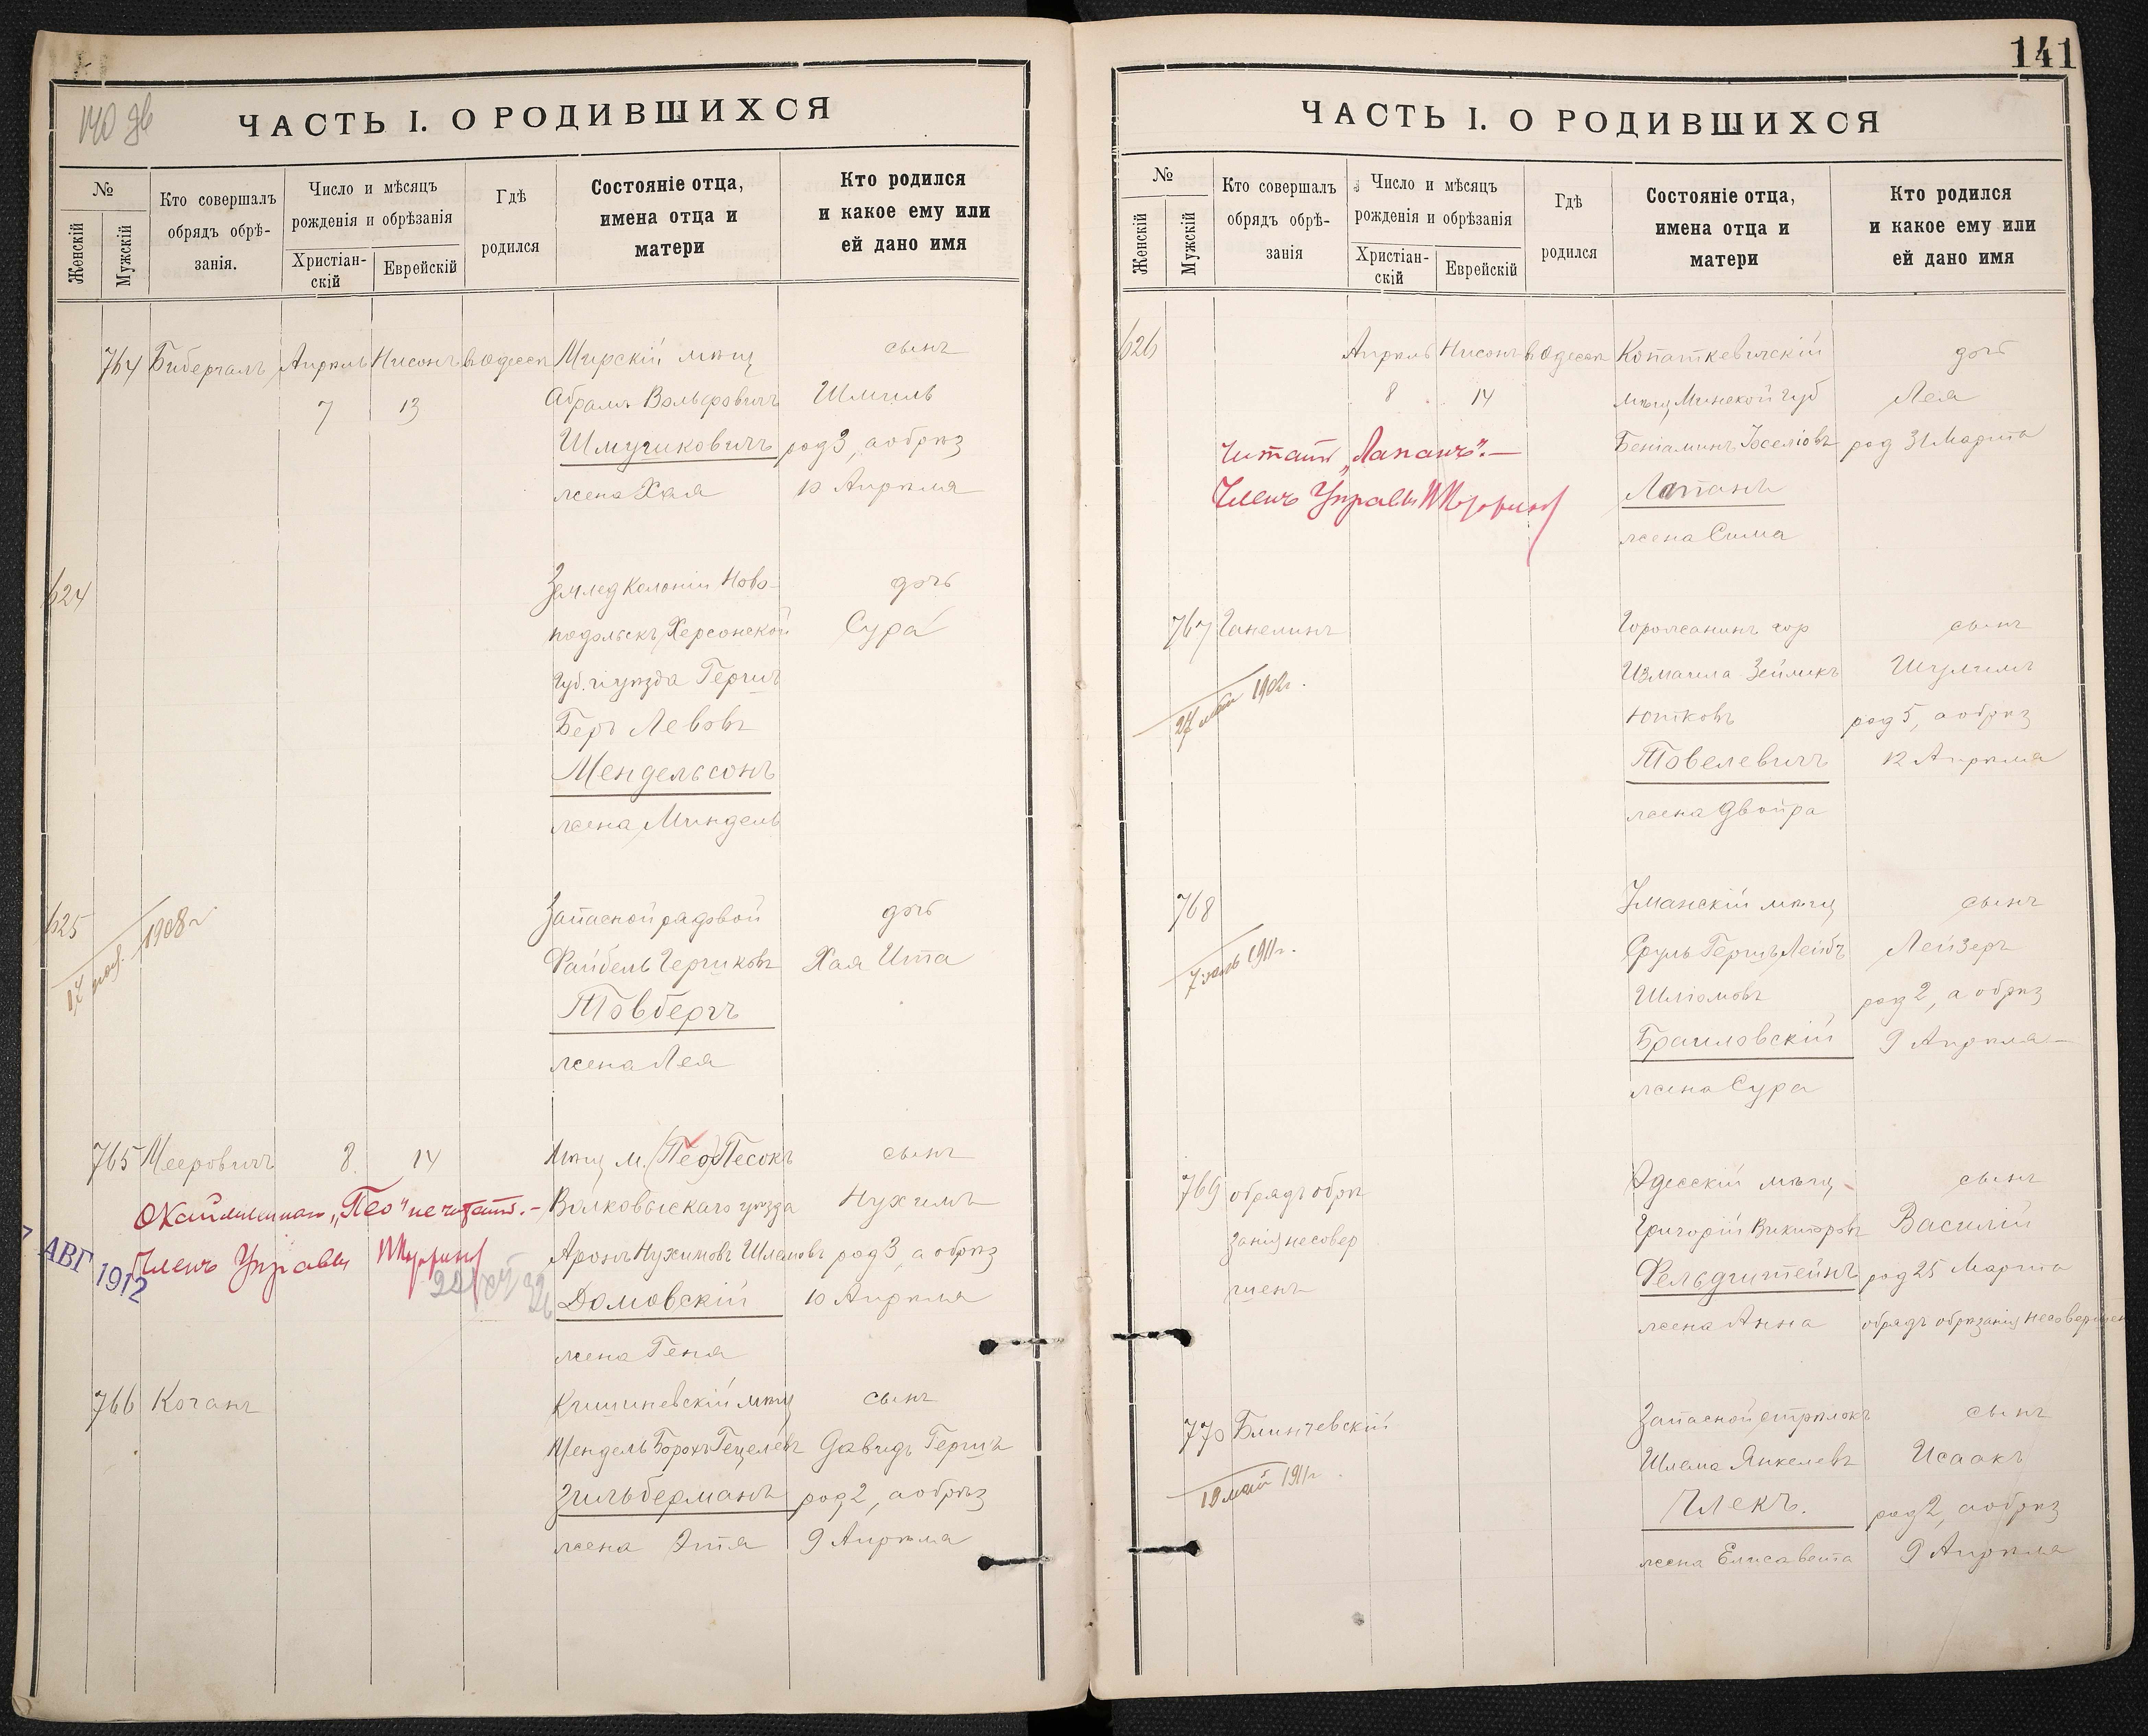 140 об
ЧАСТЬ I. О РОДИВШИХСЯ
№
Женскій
Мужскій
Кто совершалъ
обрядъ обрѣ-
занія.
Число и мѣсяцъ
рожденія и обрѣзанія
Христіан-
скій
Еврейскій
Гдѣ
родился
Состояніе отца,
имена отца и
матери
Кто родился
и какое ему или
ей дано имя
764 Апрѣль Нисонъ въ Одессѣ Мирскій мѣщ сынъ
7 13 Абрамъ Вольфовичъ Шмиль
Шмушковичъ род 3, а обрѣз
жена Хая 10 Апрѣля
624 Землед Колоніи Ново- дочь
подольскъ Херсонской Сура
губ. и уѣзда Гершъ
Беръ Левовъ
Мендельсонъ
жена Миндель
625 Запасной рядовой дочь
Файбель Гершковъ Хая Ита
Товбергъ
жена Лея
17 1908 г
765 Мееровичъ 8 14 Мѣщ м. (Пео) Песокъ сынъ
"Пео" не читать.—
Волковыскаго уѣзда Нухимъ
Членъ Управы
Аронъ Нухимовъ Шлемовъ род 3, а обрѣз
Домовскій 10 Апрѣля
жена Геня
7 АВГ 1912
766 Коганъ Кишиневскій мѣщ сынъ
Мендель Борохъ Гецелевъ Давидъ Гершъ
Зильберманъ род 2, а обрѣз
жена Этя 9 Апрѣля
141
ЧАСТЬ I. О РОДИВШИХСЯ
№
Женскій
Мужскій
Кто совершалъ
обрядъ обрѣ-
занія
Число и мѣсяцъ
рожденія и обрѣзанія
Христіан-
скій
Еврейскій
Гдѣ
родился
Состояніе отца,
имена отца и
матери
Кто родился
и какое ему или
ей дано имя
626 Апрѣль Нисонъ въ Одессѣ Копаткевичскій дочь
8 14 мѣщ Минской губ Лея
Беніаминъ Іоселіовъ род 31 Марта
Читать "Лапанъ".—
Лапанъ
Членъ Управы
жена Сима
767 Ганелинъ Горожанинъ гор сынъ
Измаила Зейликъ Шулимъ
Ютковъ род 5, а обрѣз
Товелевичъ 12 Апрѣля
жена Двойра
27 май 1902 г.
768 Уманскій мѣщ сынъ
Сруль Гершъ Лейбъ Лейзеръ
Шліомовъ род 2, а обрѣз
Браиловскій 9 Апрѣля
жена Сура
7 1911 г.
769 обрядъ обрѣ Одесскій мѣщ сынъ
занія несовер Григорій Викторовъ Василій
шенъ Фельдштейнъ род 25 Марта
жена Анна обрядъ обрѣзанія несовершен
770 Блинчевскій Запасной стрѣлокъ сынъ
Шлема Янкелевъ Исаакъ
Члекъ. род 2, а обрѣз
жена Елисавета 9 Апрѣля
май 1911 г